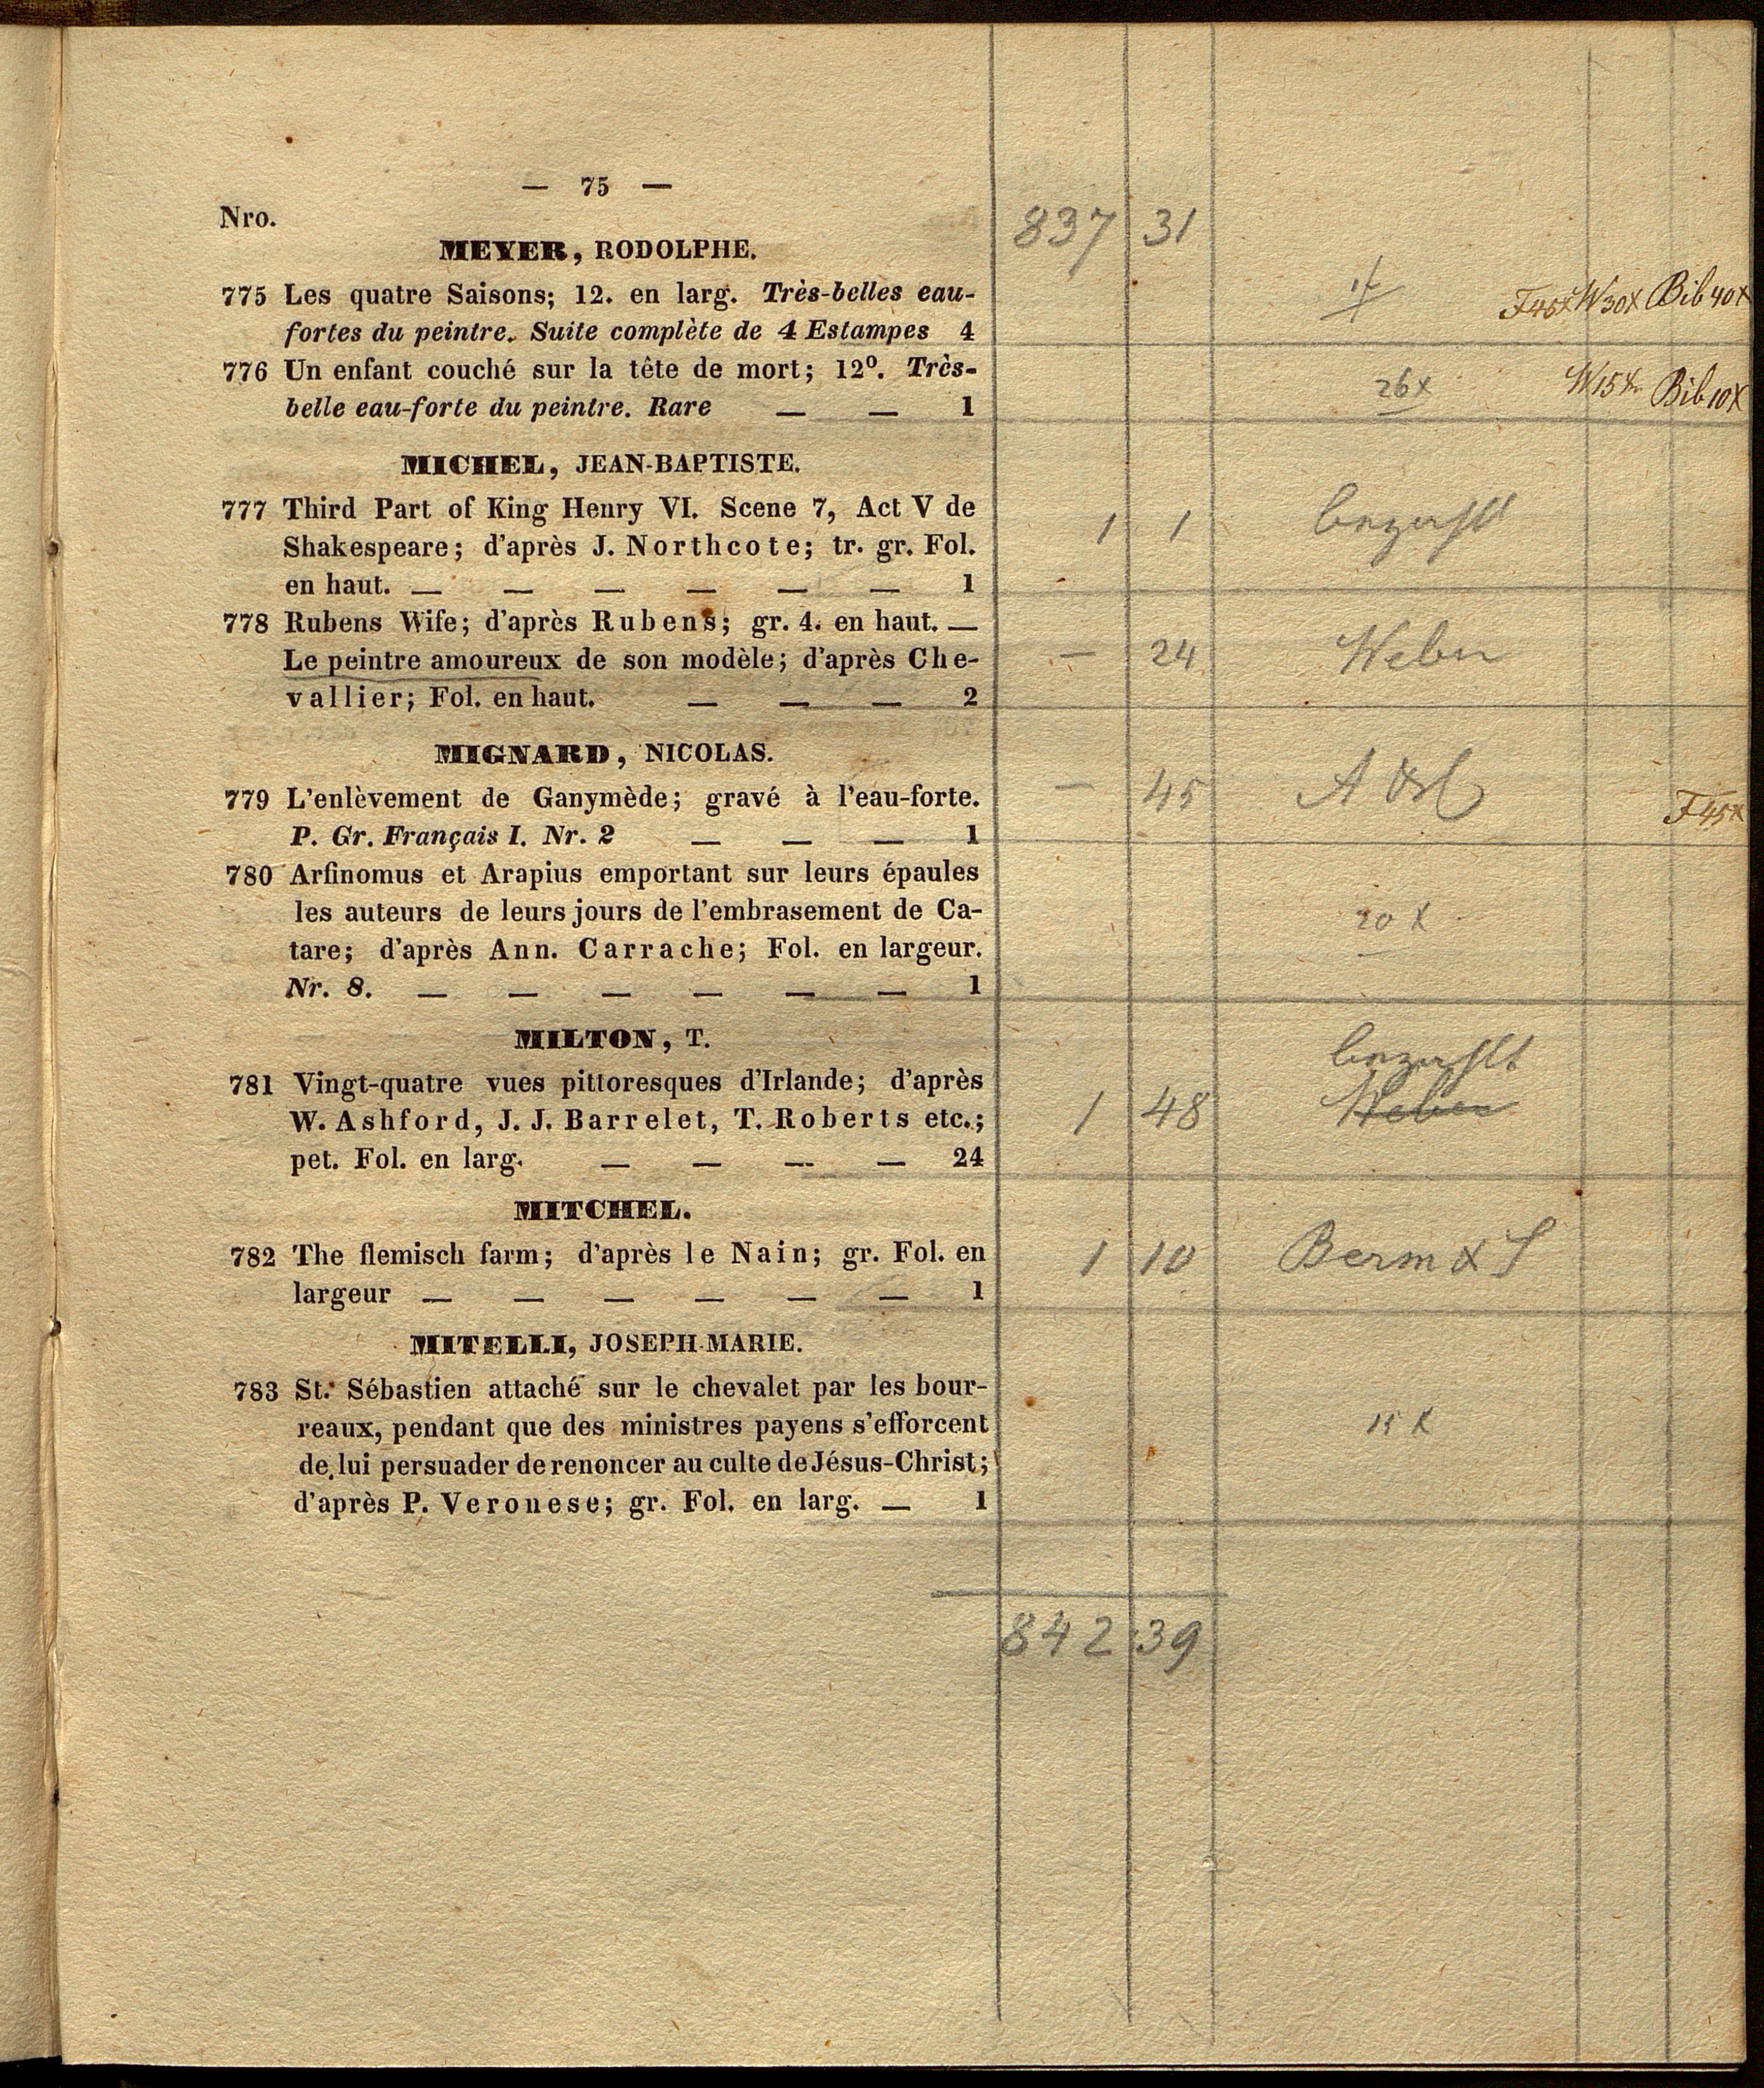 — 75 —
Nro.
837 31
MEYER, RODOLPHE.
775 Les quatre Saisons; 12. en larg. Très-belles eau-
F45x W30x Bib40x
fortes du peintre. Suite complète de 4 Estampes 4
776 Un enfant couché sur la tête de mort; 12⁰. Très-
26x W15x Bib10x
belle eau-forte du peintre. Rare — — 1
MICHEL, JEAN-BAPTISTE.
777 Third Part of King Henry VI. Scene 7, Act V de
1 1 bezahlt
Shakespeare; d'après J. Northcote; tr. gr. Fol.
en haut. — — — — — — 1
778 Rubens Wife; d'après Rubens; gr. 4. en haut. —
— 24 Weber
Le peintre amoureux de son modèle; d'après Che-
vallier; Fol. en haut. — — — 2
MIGNARD, NICOLAS.
779 L'enlèvement de Ganymède; gravé à l'eau-forte.
— 45 F45x
P. Gr. Français I. Nr. 2 — — — 1
780 Arfinomus et Arapius emportant sur leurs épaules
les auteurs de leurs jours de l'embrasement de Ca-
20 x
tare; d'après Ann. Carrache; Fol. en largeur.
Nr. 8. — — — — — — 1
MILTON, T.
bezahlt
781 Vingt-quatre vues pittoresques d'Irlande; d'après
1 48 Weber
W. Ashford, J. J. Barrelet, T. Roberts etc.;
pet. Fol. en larg. — — — — 24
MITCHEL.
782 The flemisch farm; d'après le Nain; gr. Fol. en
1 10 Berm & S
largeur — — — — — — 1
MITELLI, JOSEPH-MARIE.
783 St. Sébastien attaché sur le chevalet par les bour-
reaux, pendant que des ministres payens s'efforcent
15 x
de lui persuader de renoncer au culte de Jésus-Christ;
d'après P. Veronese; gr. Fol. en larg. — 1
842 39